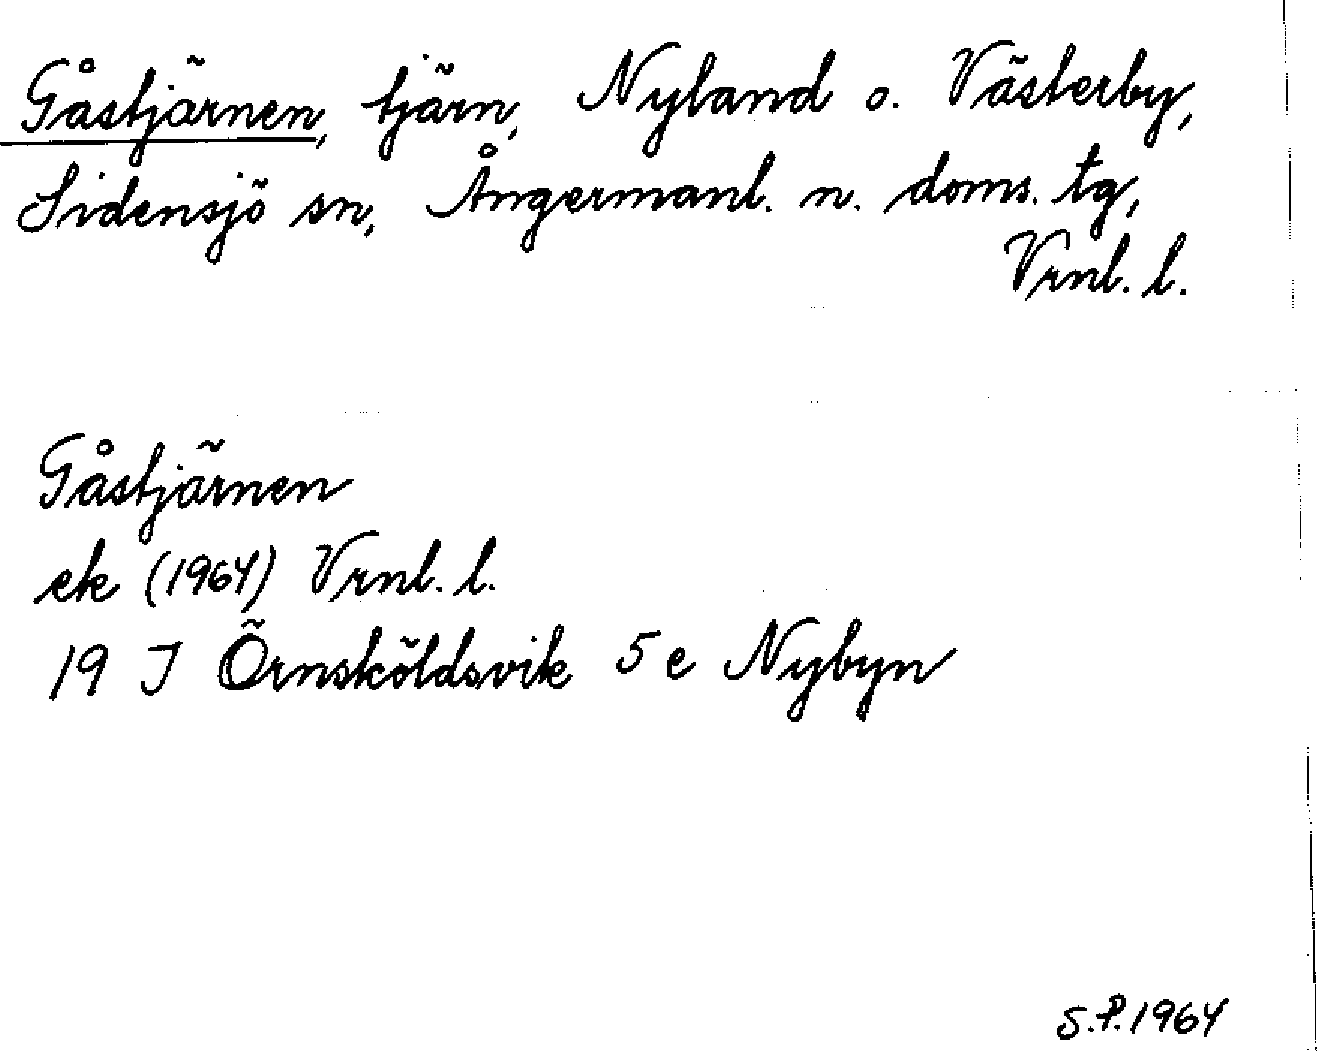 Gåstjärnen, tjärn, Nyland o. Västerby,
Sidensjö sn, Ångermanl. n. doms. tg,
Vrnl. l.
Gåstjärnen
ek (1964) Vrnl. l.
19 J Örnsköldsvik 5 e Nybyn
S.P. 1964